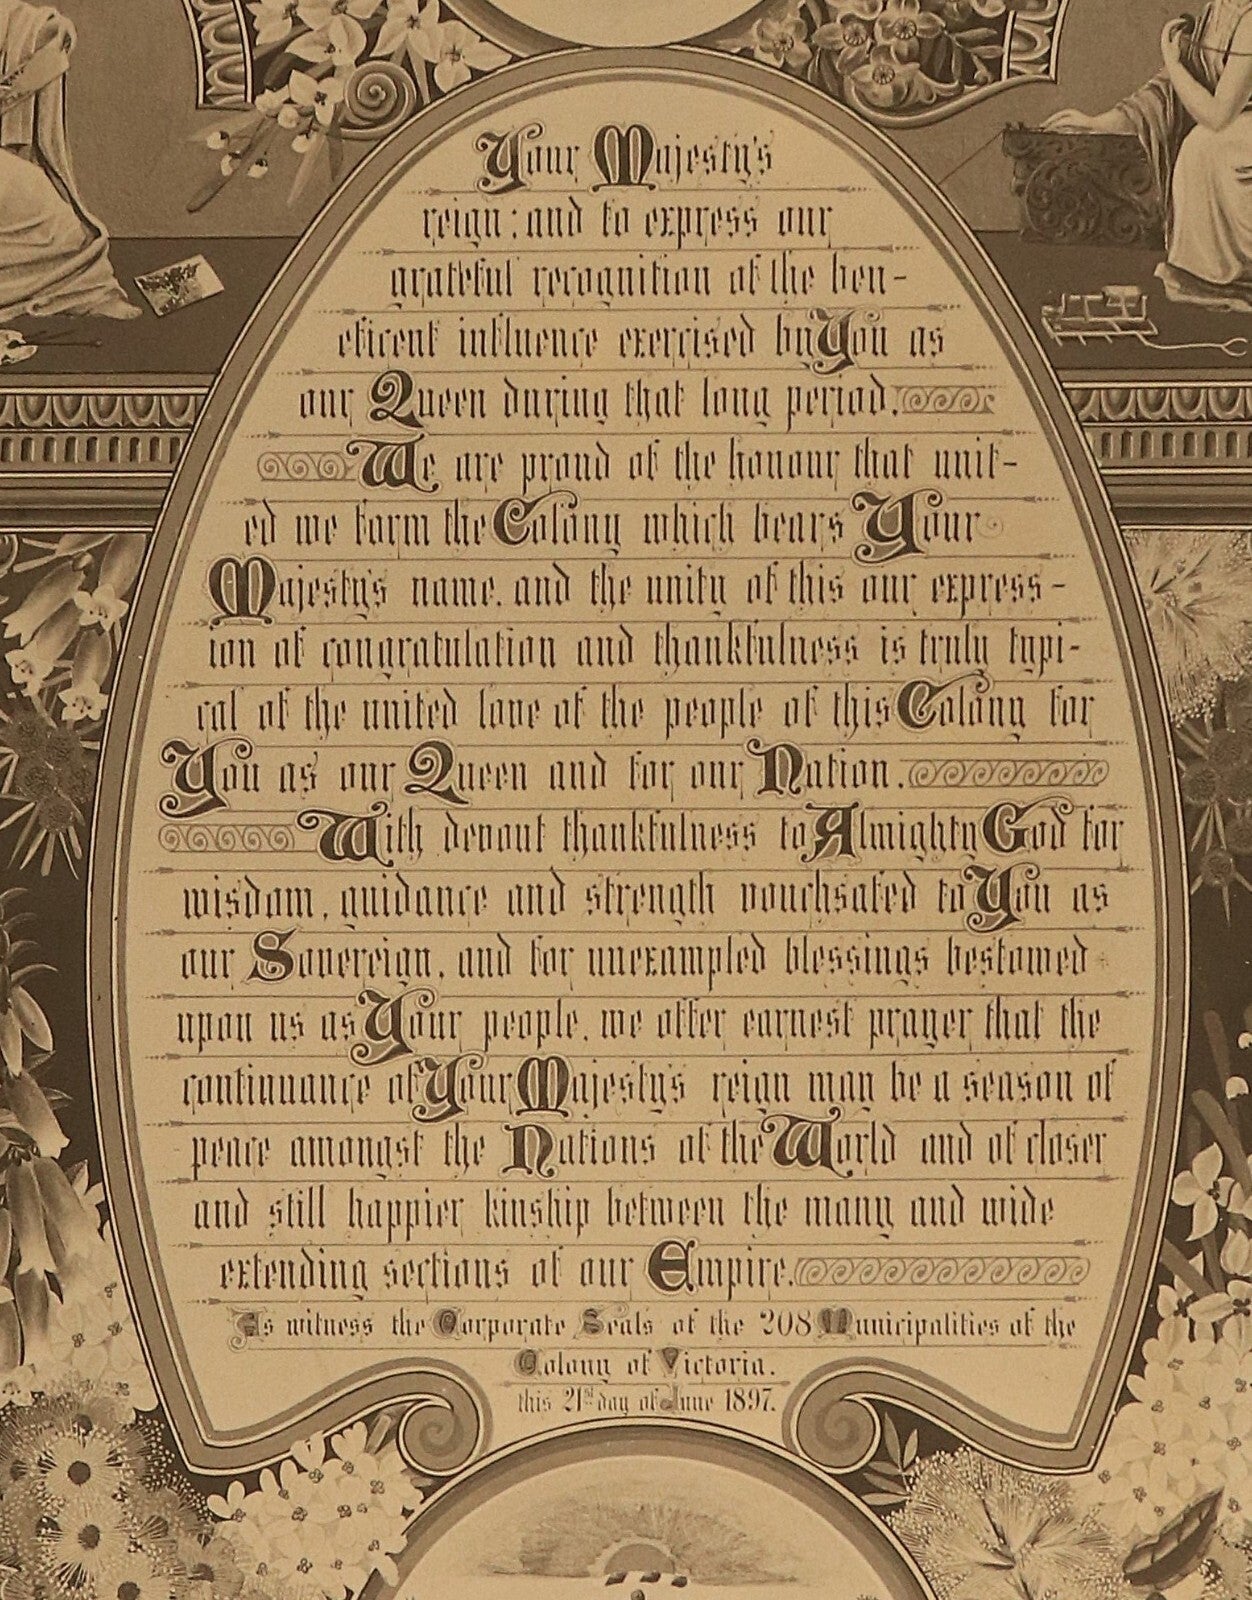 Your Majesty's
reign; and to express our
grateful recognition of the ben-
eficent influence exercised by You as
our Queen during that long period.
We are proud of the honour that unit-
ed we form the Colony which bears Your
Majesty's name, and the unity of this our express-
ion of congratulation and thankfulness is truly typi-
cal of the united love of the people of this Colony for
You as our Queen and for our Nation.
With devout thankfulness to Almighty God for
wisdom, guidance and strength vouchsafed to You as
our Sovereign, and for unexampled blessings bestowed
upon us as Your people, we offer earnest prayer that the
continuance of Your Majesty's reign may be a season of
peace amongst the Nations of the World and of closer
and still happier kinship between the many and wide
extending sections of our Empire.
As witness the Corporate Seals of the 208 Municipalities of the
Colony of Victoria.
this 21st day of June 1897.